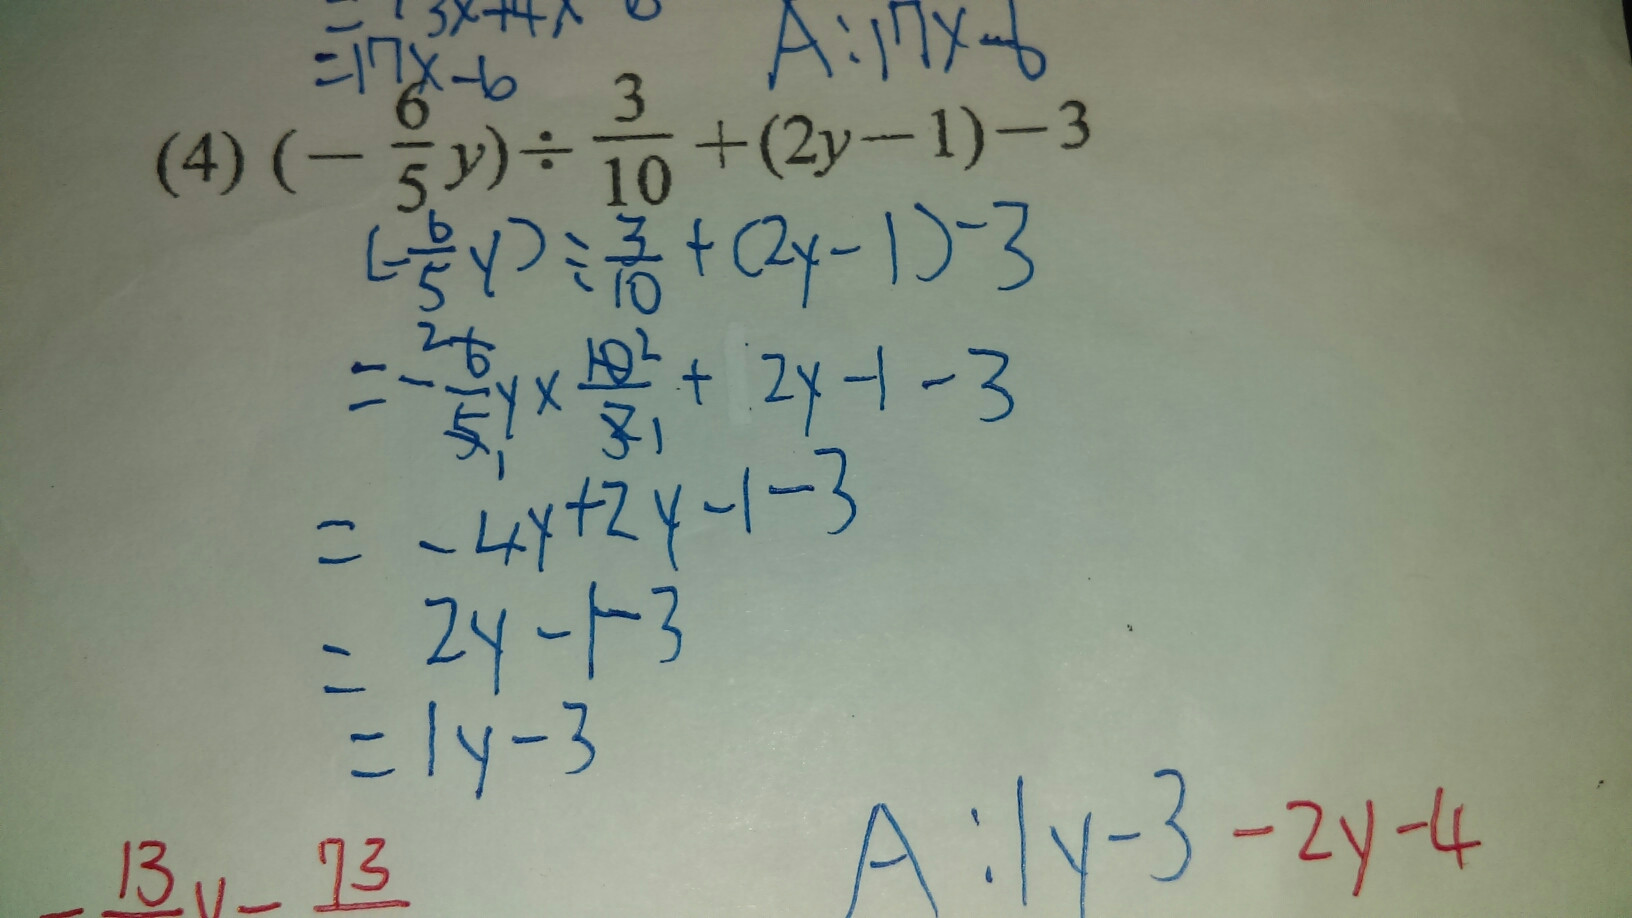 = 13x+4x-6
=17x-6
A:17x-6
(4) (-6/5 y)÷3/10+(2y-1)-3
(-6/5 y)÷3/10+(2y-1)-3
=-6/5 y×10/3+2y-1-3
= -4y+2y-1-3
= 2y-1-3
= 1y-3
A:1y-3 -2y-4
-13 y- 73